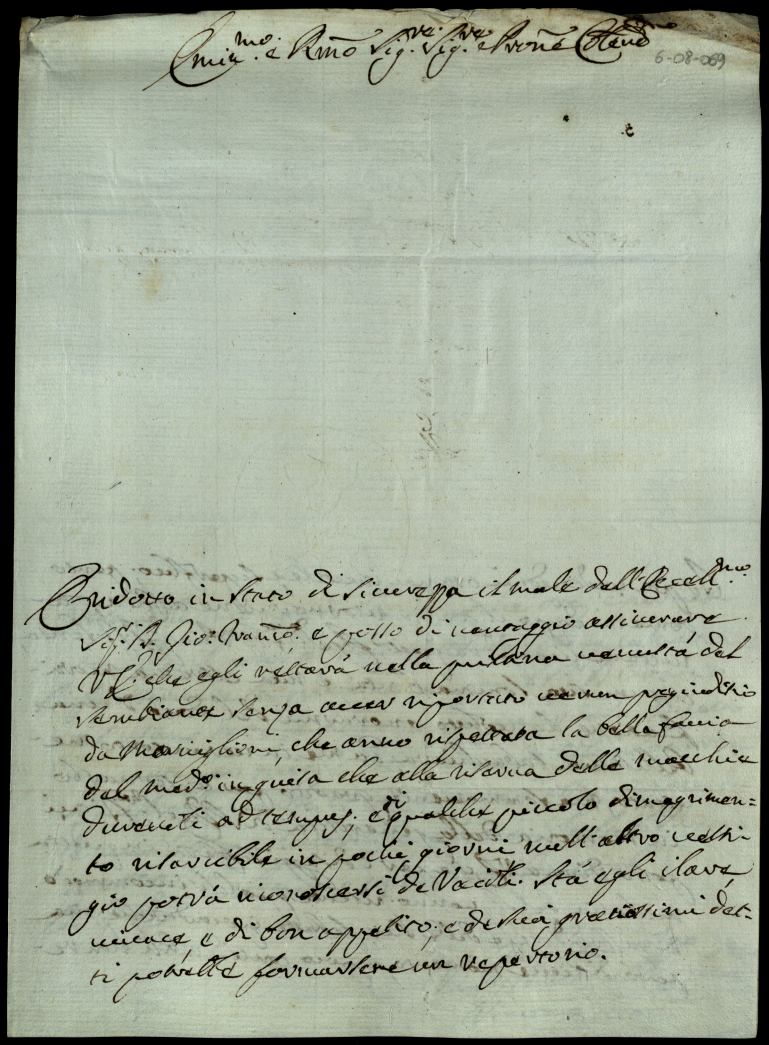 Emin.mo e Rmō Sig.re Sig.re e Pronē Colendmo
6-08-069
Ridotto in stato di sicurezza il male dell'Eccell.mo
Sig.r D. Gio. Franco. e posso di vantaggio assicurare
V. che egli resterà nella pristina venustà del
sembiante senza aver riportato verun pregiudizio
da Morviglioni, che anno rispettata la bella faccia
del med.o in guisa che alla riserva delle macchie
durevoli ad tempus, e di qualche piccolo dimagrimen=
to risarcibile in pochi giorni null'altro vesti=
gio potrà riconoscersi de Vaioli. Stà egli ilare
vivace, e di bon appetito, e de suoi graziosissimi det=
ti potrebbe formarsene un repertorio.